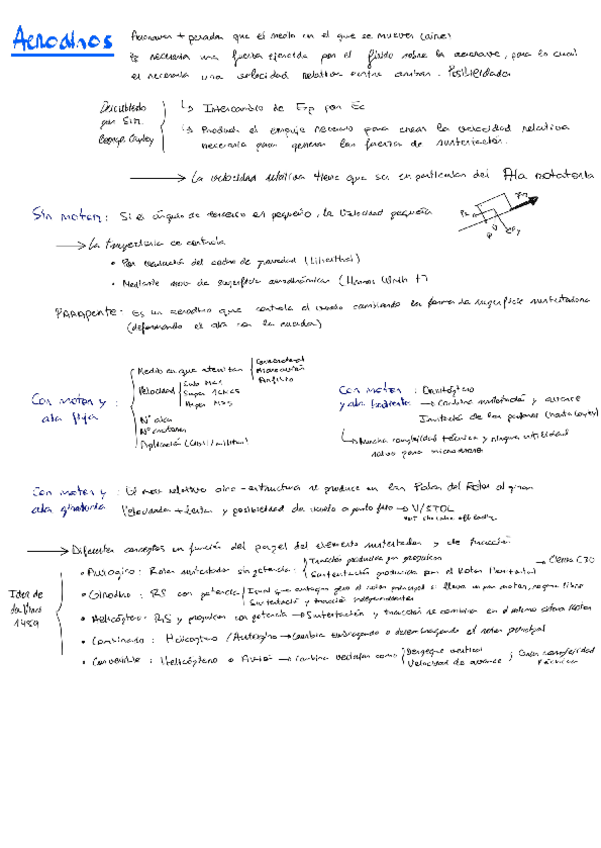 Aerodinos
Aeronaves + pesadas que el medio en el que se mueven (aire)
Es necesaria una fuerza ejercida por el fluido sobre la aeronave, para lo cual
es necesaria una velocidad relativa entre ambos. Posibilidades
Descubierto por Sir. George Cayley
↳ Intercambio de Ep por Ec
↳ Producir el empuje necesario para crear la velocidad relativa
necesaria para generar las fuerzas de sustentación.
→ La velocidad relativa tiene que ser en particular del Ala rotatoria
Sin motor: Si el ángulo de descenso es pequeño, la velocidad pequeña
→ La trayectoria se controla
• Por variación del centro de gravedad (Lilienthal)
• Mediante superficies aerodinámicas (Hermanos Wright)
Parapente: Es un aerodino que controla el vuelo cambiando la forma de superficie sustentadora
(deformando el ala con las cuerdas)
Con motor y ala fija:
Medio en que aterrizan
Hidroavión
Anfibio
Velocidad
Sub M<1
Super 1<M<5
Hyper M>5
Nº alas
Nº motores
Aplicación (Civil/militar)
Con motor y ala batiente: Ornitóptero
→ Combina sustentación y avance
↳ Mucha complejidad técnica y ninguna utilidad
salvo para
Con motor y ala giratoria: El mov relativo aire-estructura se produce en las Palas del Rotor al girar
Velocidades + lentas y posibilidad de vuelo a punto fijo → V/STOL
→ Diferentes conceptos en función del papel del elemento sustentador y de tracción
Idea de da Vinci 1489
• Autogiro: Rotor sustentador sin potencia:
Tracción producida por propulsor
Sustentación producida por el Rotor horizontal
→ Cierva C30
• Girodino: RS con potencia
Igual que autogiro pero el rotor principal si lleva un motor,
Sustentación y tracción independientes
• Helicóptero: RS y propulsor con potencia → Sustentación y tracción se combina en el mismo Rotor
• Combinado: Helicóptero / Autogiro → Cambia embragando o desembragando el rotor principal
• Convertible: Helicóptero o Avión → Combina ventajas como
Despegue vertical
Velocidad de avance
; Gran complejidad técnica